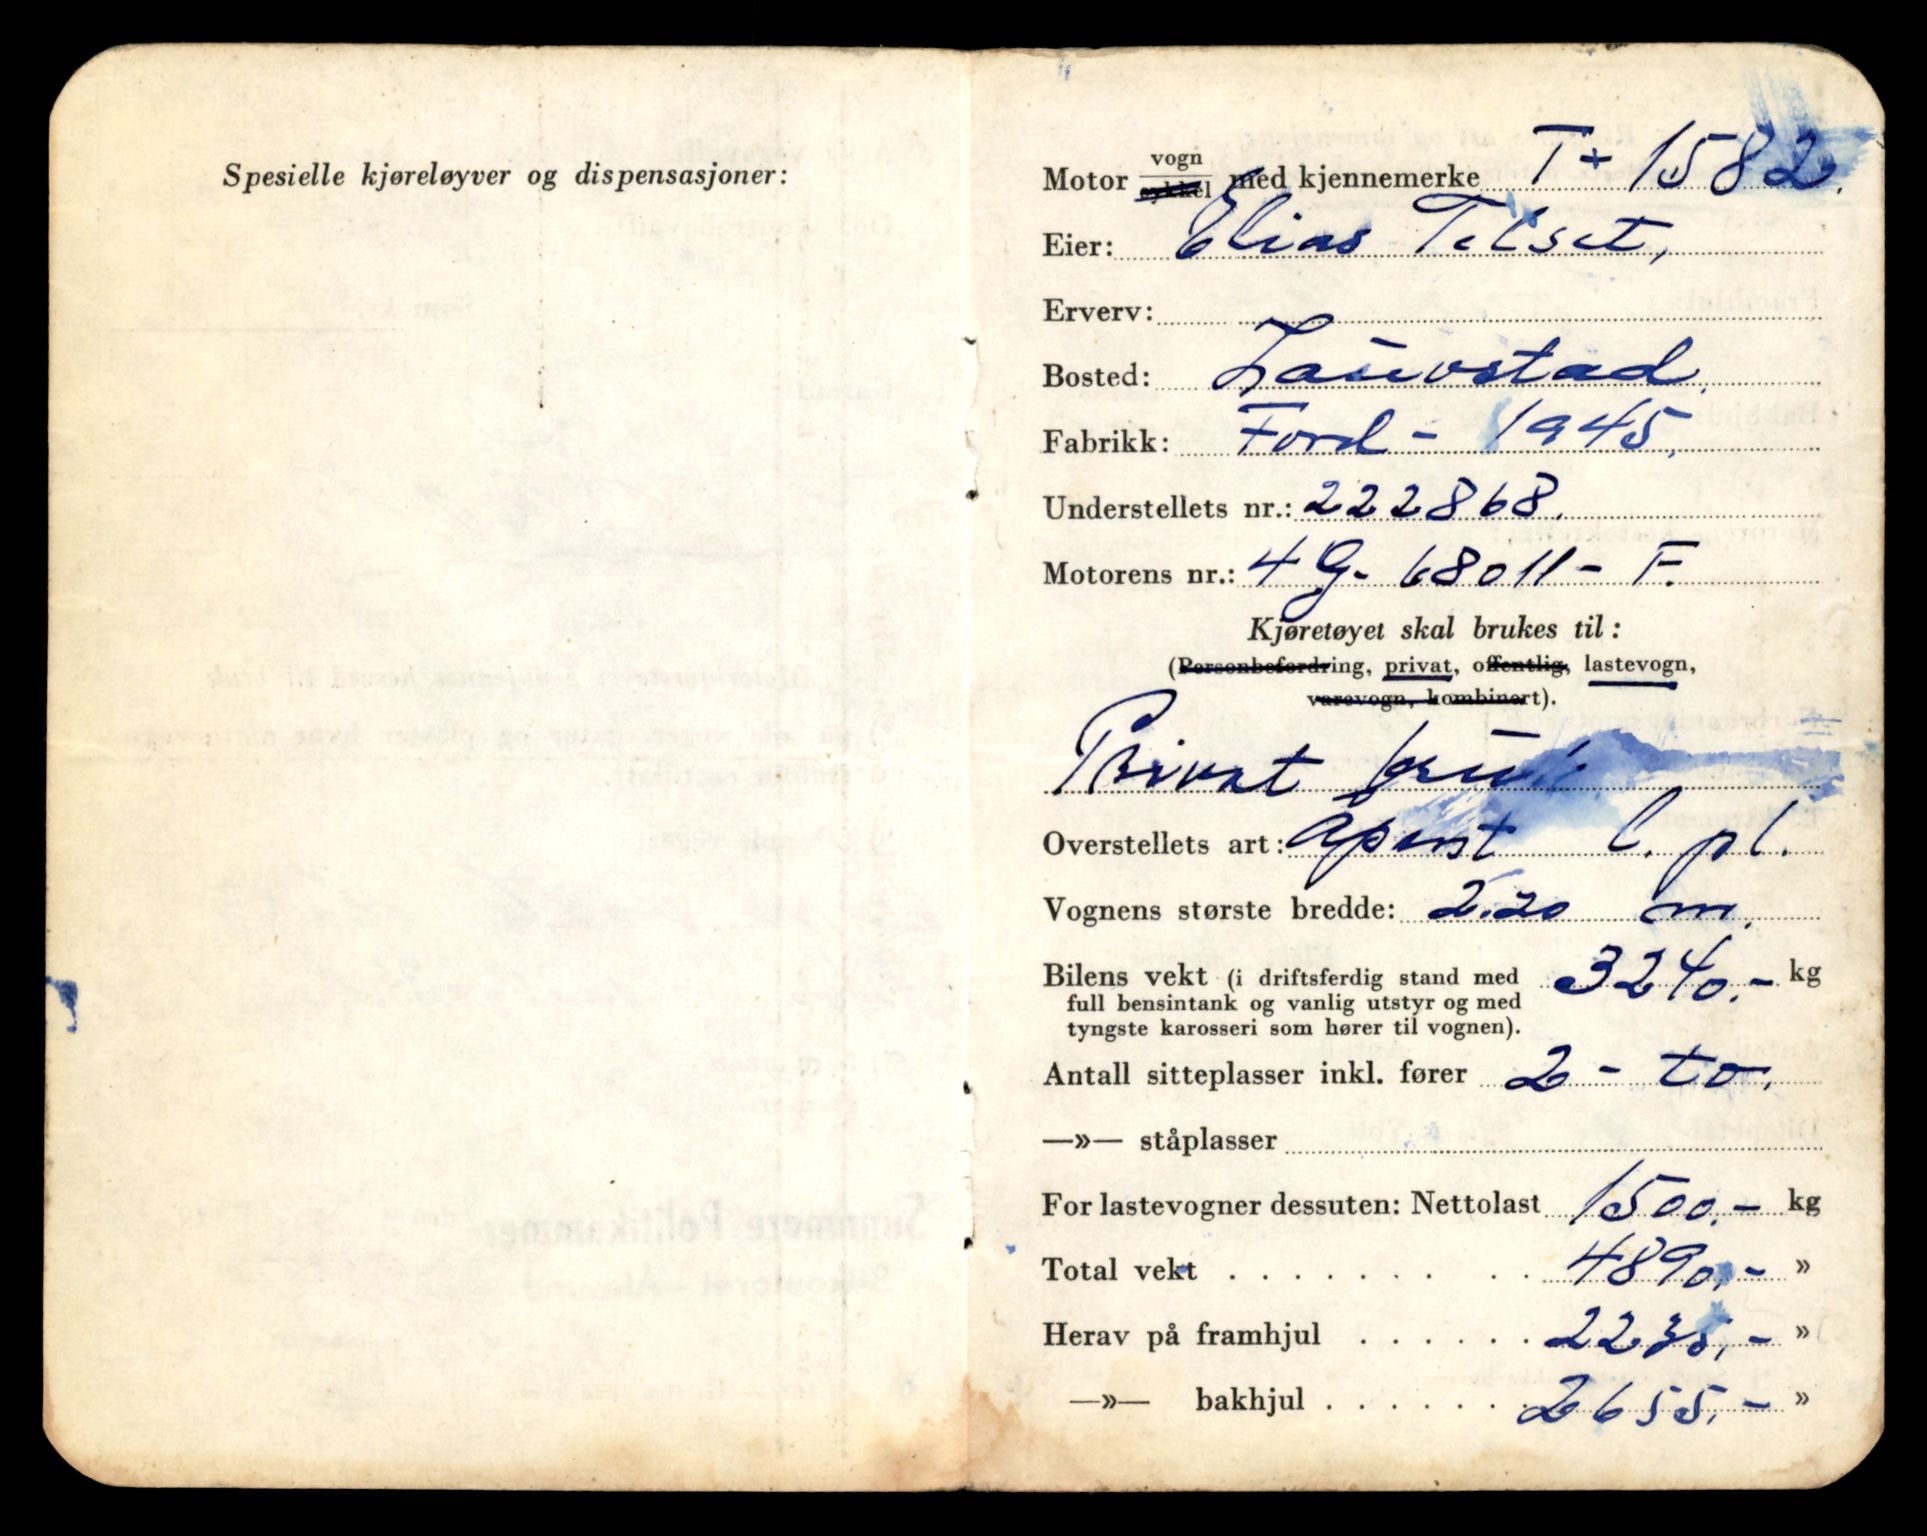 Spesielle kjøreløyver og dispensasjoner:
Motor vogn/cykkel med kjennemerke T+ 1582.
Eier: Elias Telset,
Erverv:
Bosted:
Fabrikk: Ford - 1945.
Understellets nr.: 222868.
Motorens nr.: 4 G- 68011 - F.
Kjøretøyet skal brukes til:
(Personbefordring, privat, offentlig, lastevogn,
varevogn, kombinert).
Privat bruk
Overstellets art: åpent l. pl.
Vognens største bredde: 2.20 m.
Bilens vekt (i driftsferdig stand med 3240.- kg
full bensintank og vanlig utstyr og med
tyngste karosseri som hører til vognen).
Antall sitteplasser inkl. fører 2 - to.
—»— ståplasser
For lastevogner dessuten: Nettolast 1500.- kg
Total vekt 4890.- »
Herav på framhjul 2235.- »
—»— bakhjul 2655.- »